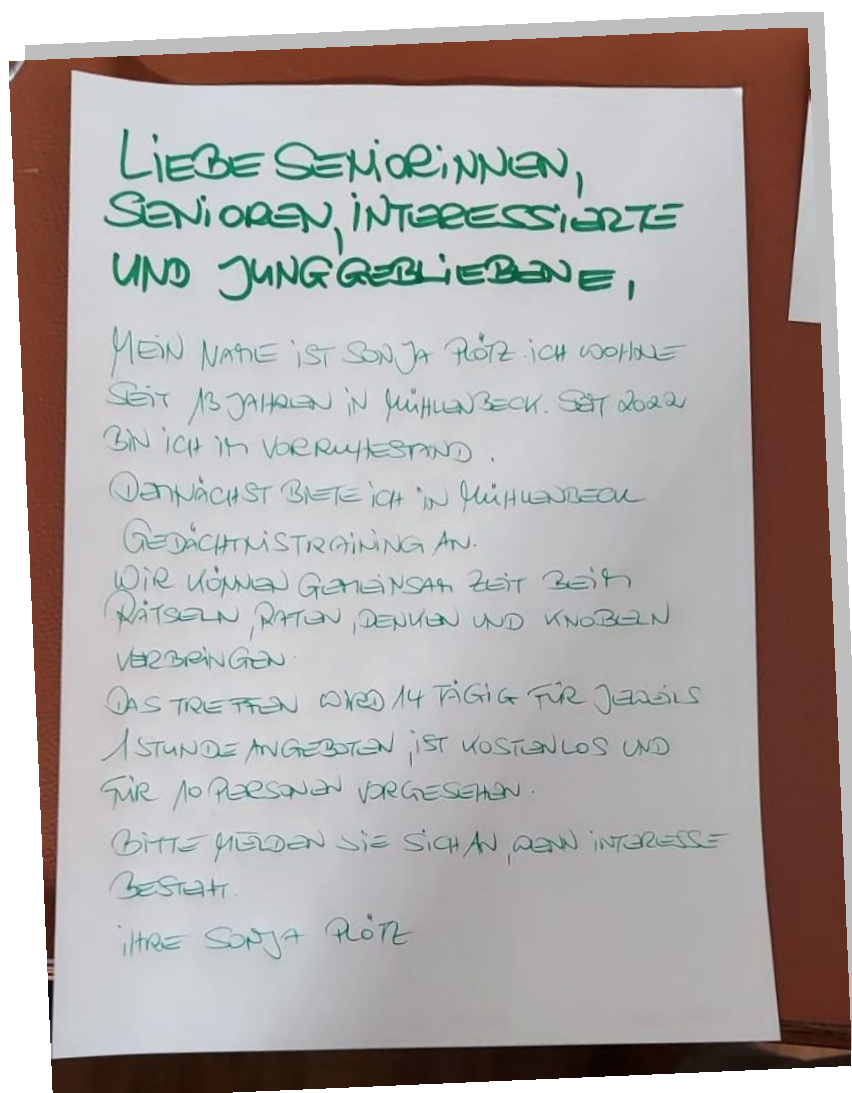 LIEBE SENIORINNEN,
SENIOREN, INTERESSIERTE
UND JUNGGEBLIEBENE,
MEIN NAME IST SONJA PLÖTZ. ICH WOHNE
SEIT 13 JAHREN IN MÜHLENBECK. SEIT 2022
BIN ICH IM VORRUHESTAND.
DEMNÄCHST BIETE ICH IN MÜHLENBECK
GEDÄCHTNISTRAINING AN.
WIR KÖNNEN GEMEINSAM ZEIT BEIM
RÄTSELN, RATEN, DENKEN UND KNOBELN
VERBRINGEN.
DAS TREFFEN WIRD 14 TÄGIG FÜR JEWEILS
1 STUNDE ANGEBOTEN, IST KOSTENLOS UND
FÜR 10 PERSONEN VORGESEHEN.
BITTE MELDEN SIE SICH AN, WENN INTERESSE
BESTEHT.
IHRE SONJA PLÖTZ